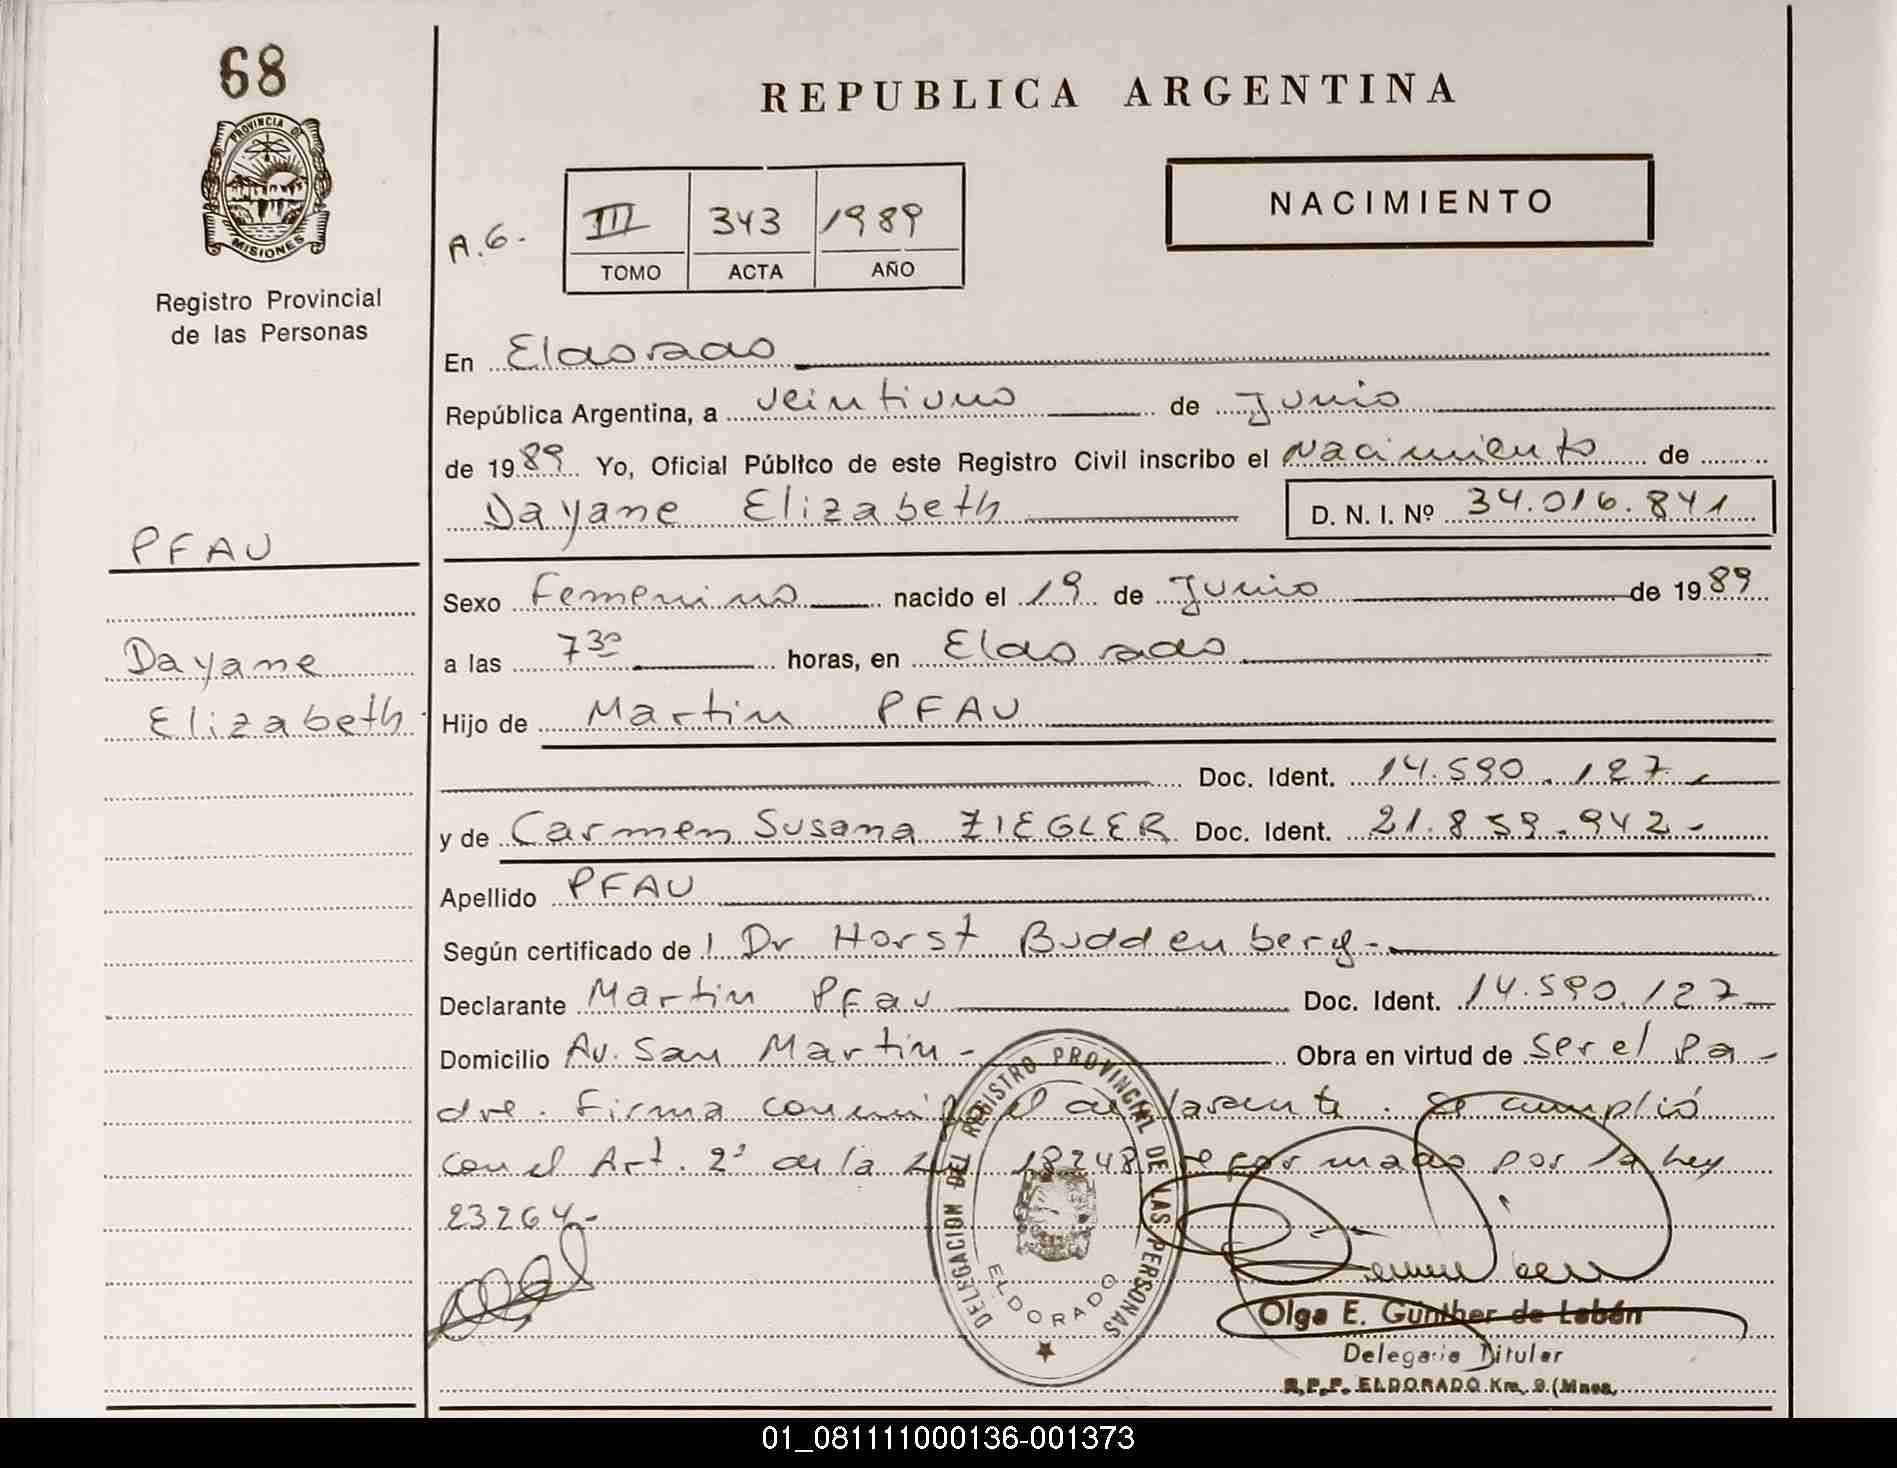 68
PROVINCIA DE
MISIONES
Registro Provincial
de las Personas
PFAU
Dayane
Elizabeth
REPUBLICA ARGENTINA
NACIMIENTO
A.G.
III 343 1989
TOMO ACTA AÑO
En Eldorado
República Argentina, a veintiuno de Junio
de 1989 Yo, Oficial Público de este Registro Civil inscribo el Nacimiento de
Dayane Elizabeth D. N. I. Nº 34.016.841
Sexo Femenino nacido el 19 de Junio de 1989
a las 7 30 horas, en Eldorado
Hijo de Martin PFAU
Doc. Ident. 14.590.127
y de Carmen Susana ZIEGLER Doc. Ident. 21.859.942-
Apellido PFAU
Según certificado de Dr Horst Buddenberg-
Declarante Martin Pfau Doc. Ident. 14.590.127
Domicilio Av. San Martin - Obra en virtud de ser el pa-
dre. Firma conmigo el declarante. Se cumplió
con el Art. 2º de la Ley 18248 reformado por la Ley
23264-
DELEGACION DEL REGISTRO PROVINCIAL DE LAS PERSONAS
ELDORADO
Olga E. Günther de Labán
Delegada Titular
R.P.P. ELDORADO Km. 9 (Mnes.
01_081111000136-001373